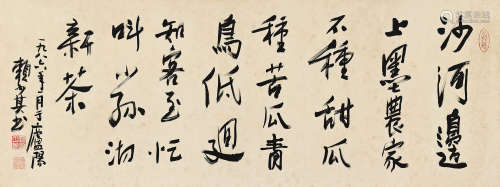 沙河島邊
上墨農家
不種甜瓜
種苦瓜青
鳥低迴
知客至忙
叫小孫沏
新茶
一九八六年二月于廬陽
賴少其書